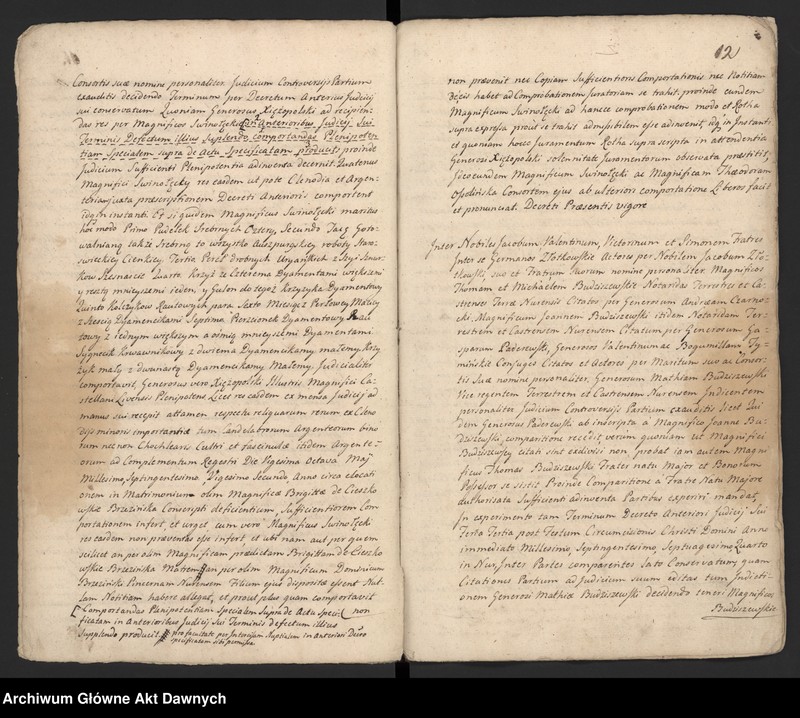 Consortis suæ nomine personaliter Judicium Controversijs Partium
exauditis decidendo Terminum per Decretum Anterius Judicij
sui conservatum Generosus Xiężopolski ad recipien-
das res per Magnificos Swinołęckie in Anterioribus Judicij Sui
Terminis Defectum illius Suplendo comportandas Plenipoten
tiam Specialem supra de Actu Specificatam produxit, proinde
Judicium Sufficienti Plenipotentia adinventa decernit. Quatenus
Magnifici Swinołęcky res easdem ut pote Clenodia et Argen-
teria juxta præscriptionem Decreti Anterioris comportent
idq in instanti. Et siquidem Magnificus Swinołęcki maritus
hoc modo Primo Pudełek Srebrnych Cztery, Secundo Tacę Goto-
walnianą także Srebrną to wszystko Auszpurskiey roboty Staro
swieckiey Cienkiey Tertio Pereł drobnych Uryańskich z Szyi Sznur-
kow Szesnascie Quarto Krzyż ze Czterema Dyamentami większemi
y resztą mnieyszemi ieden, y Gulon do tegoż Krzyżyka Dyamentowy
Quinto Kolczykow Rautowych para Sexto Miesiąc z Perłowey Macicy
z Sześcią Dyamencikami Septimo Pierscionek Dyamentowy
towy z iednym większym a osmią mnieyszemi Dyamentami
Sygnecik Krwawnikowy z dwiema Dyamencikamy małemy, Krzy
żyk mały z dwunastą Dyamencikamy Małemy, Judicialiter
comportavit, Generosus vero Xiężopolski Illustris Magnifici Ca-
stellani Livensis Plenipotens Licet res easdem ex mensa Judicij ad
manus sui recepit attamen respectu reliquarum rerum ex Cleno
dijs minoris importantiæ tum Candelabrorum Argenteorum bino
rum nec non Chochlearis Cultri et fascinulæ itidem Argente-
orum ad Complementum Regestri Die Vigesima Octava Maij
Millesimo, Septingentesimo, Vigesimo Secundo, Anno circa elocati
onem in Matrimonium olim Magnificæ Brigittæ de Cieszko
wskie Brzezinska Conscripti deficientium, Sufficientiorem Com-
portationem infert, et urget cum vero Magnificus Swinołęcki
res easdem non prævenisse esse infert, et ubi nam aut per quem
scilicet an per olim Magnificam prædictam Brigittam de Cieszko
wskie Brzezinska Matrem an per olim Magnificum Dominicum
Brzezinski Pincernam Nurensem Filium ejus dispositæ essent Nul-
lam Notitiam habere allegat, et proul plus quam comportavit
Comportandas Plenipotentiam Specialem Supra de Actu Speci non
ficatam in Anterioribus Judicij Sui Terminis defectum illius
Supplendo producit pro facultate per Intercisam Nuptialem in Anteriori Decreto
specificatam sibi permissa
12
non prævenit nec Copiam Sufficientioris Comportationis nec Notitiam
habet ad Comprobationem Juratoriam se trahit. proinde eundem
Magnificum Swinołęcki ad hancce comprobationem modo et Rotha
supra expressa prout se trahit admisibilem esse adinvenit, idq in Instanti
et quoniam hocce Juramentum Rotha supra scripta in attendentia
Generosi Xiężopolski solennitate Juramentorum observata præstitit,
ideo eundem Magnificum Swinołęcki ac Magnificam Theodoram
Ossolinska Consortem ejus ab ulteriori comportatione Liberos facit
et pronunciat. Decreti Præsentis vigore
Inter Nobiles Jacobum, Valentinum, Victorinum et Simonem Fratres
Inter se Germanos Złotkowskie Actores per Nobilem Jacobum Zło-
tkowski suo et Fratrum suorum nomine personaliter Magnificos
Thomam et Michaelem Budziszewskie Notarides Terrestris et Ca-
strenses Terræ Nurensis Citatos per Generosum Andræam Czarno-
cki, Magnificum Joannem Budziszewski itidem Notaridam Ter-
restrem et Castrensem Nurensem Citatum per Generosum Ga-
sparum Paderewski, Generosos Valentinum ac Bogumillam Ty-
minskie Conjuges Citatos et Actores per Maritum suo ac Consor-
tis Suæ nomine personaliter, Generosum Mathiam Budziszewski
Vice regentem Terrestrem et Castrensem Nurensem Indicentem
personaliter Judicium Controversijs Partium exauditis Licet Qui
dem Generosus Paderewski ab inscripta a Magnifico Joanne Bu-
dziszewski, comparitione recedit, verum quoniam ut Magnifici
Budziszewscy citati sint exdivisi non probat iam autem Magni
ficus Thomas Budziszewski Frater natu Major et Bonorum
Possessor se sistit, Proinde Comparitione a Fratre Natu Majore
authorisata Sufficienti adinventa Partibus experiri mandat,
In experimento tam Terminum Decreto Anteriori Judicij Sui
Feria Tertia post Festum Circumcisionis Christi Domini Anno
immediato Millesimo, Septingentesimo, Septuagesimo Quarto
in Nur, Inter Partes comparentes Lato Conservatum, quam
Citationes Partium ad Judicium suum editas tum Indicti-
onem Generosi Mathiæ Budziszewski decidendo censeri Magnificos
Budziszewskie
Archiwum Główne Akt Dawnych